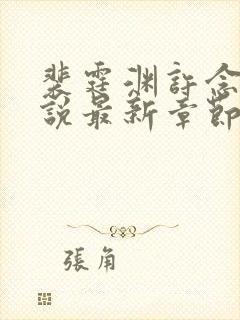 裴霆渊許念
說最新章節
張角